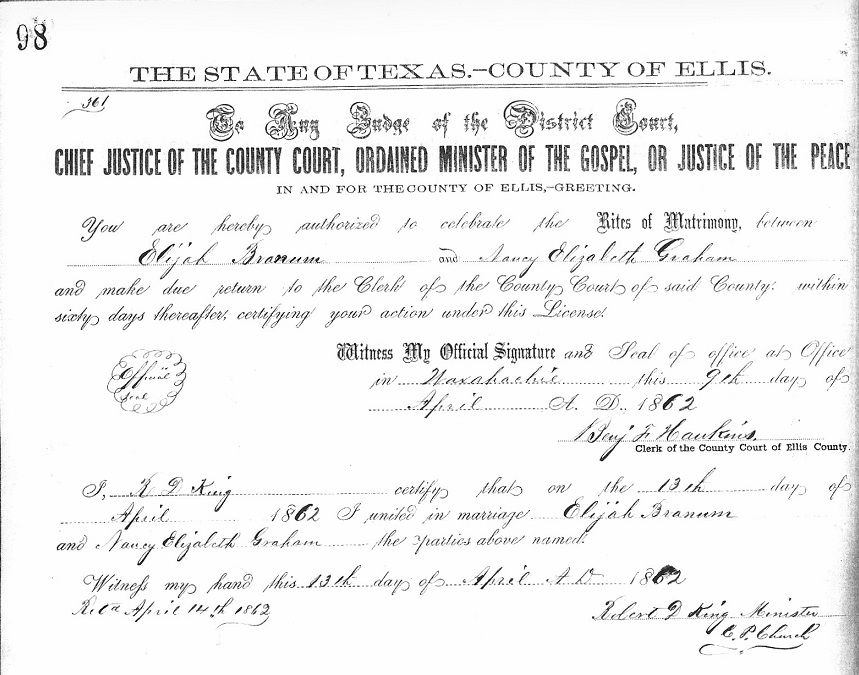 98
THE STATE OF TEXAS.-COUNTY OF ELLIS.
361
To Any Judge of the District Court,
CHIEF JUSTICE OF THE COUNTY COURT, ORDAINED MINISTER OF THE GOSPEL, OR JUSTICE OF THE PEACE
IN AND FOR THE COUNTY OF ELLIS,-GREETING.
You are hereby authorized to celebrate the Rites of Matrimony, between
Elijah Branum and Nancy Elizabeth Graham
and make due return to the Clerk of the County Court of said County, within
sixty days thereafter, certifying your action under this License.
Witness My Official Signature and Seal of office at Office
Official
seal
in Waxahachie this 9th day of
April A. D., 1862
Benj F Hawkins.
Clerk of the County Court of Ellis County.
I, R D King certify that on the 13th day of
April 1862 I united in marriage Elijah Branum
and Nancy Elizabeth Graham the parties above named.
Witness my hand this 13th day of April A D 1862
Retd April 14th 1862
Robert D King Minister
C. P. Church